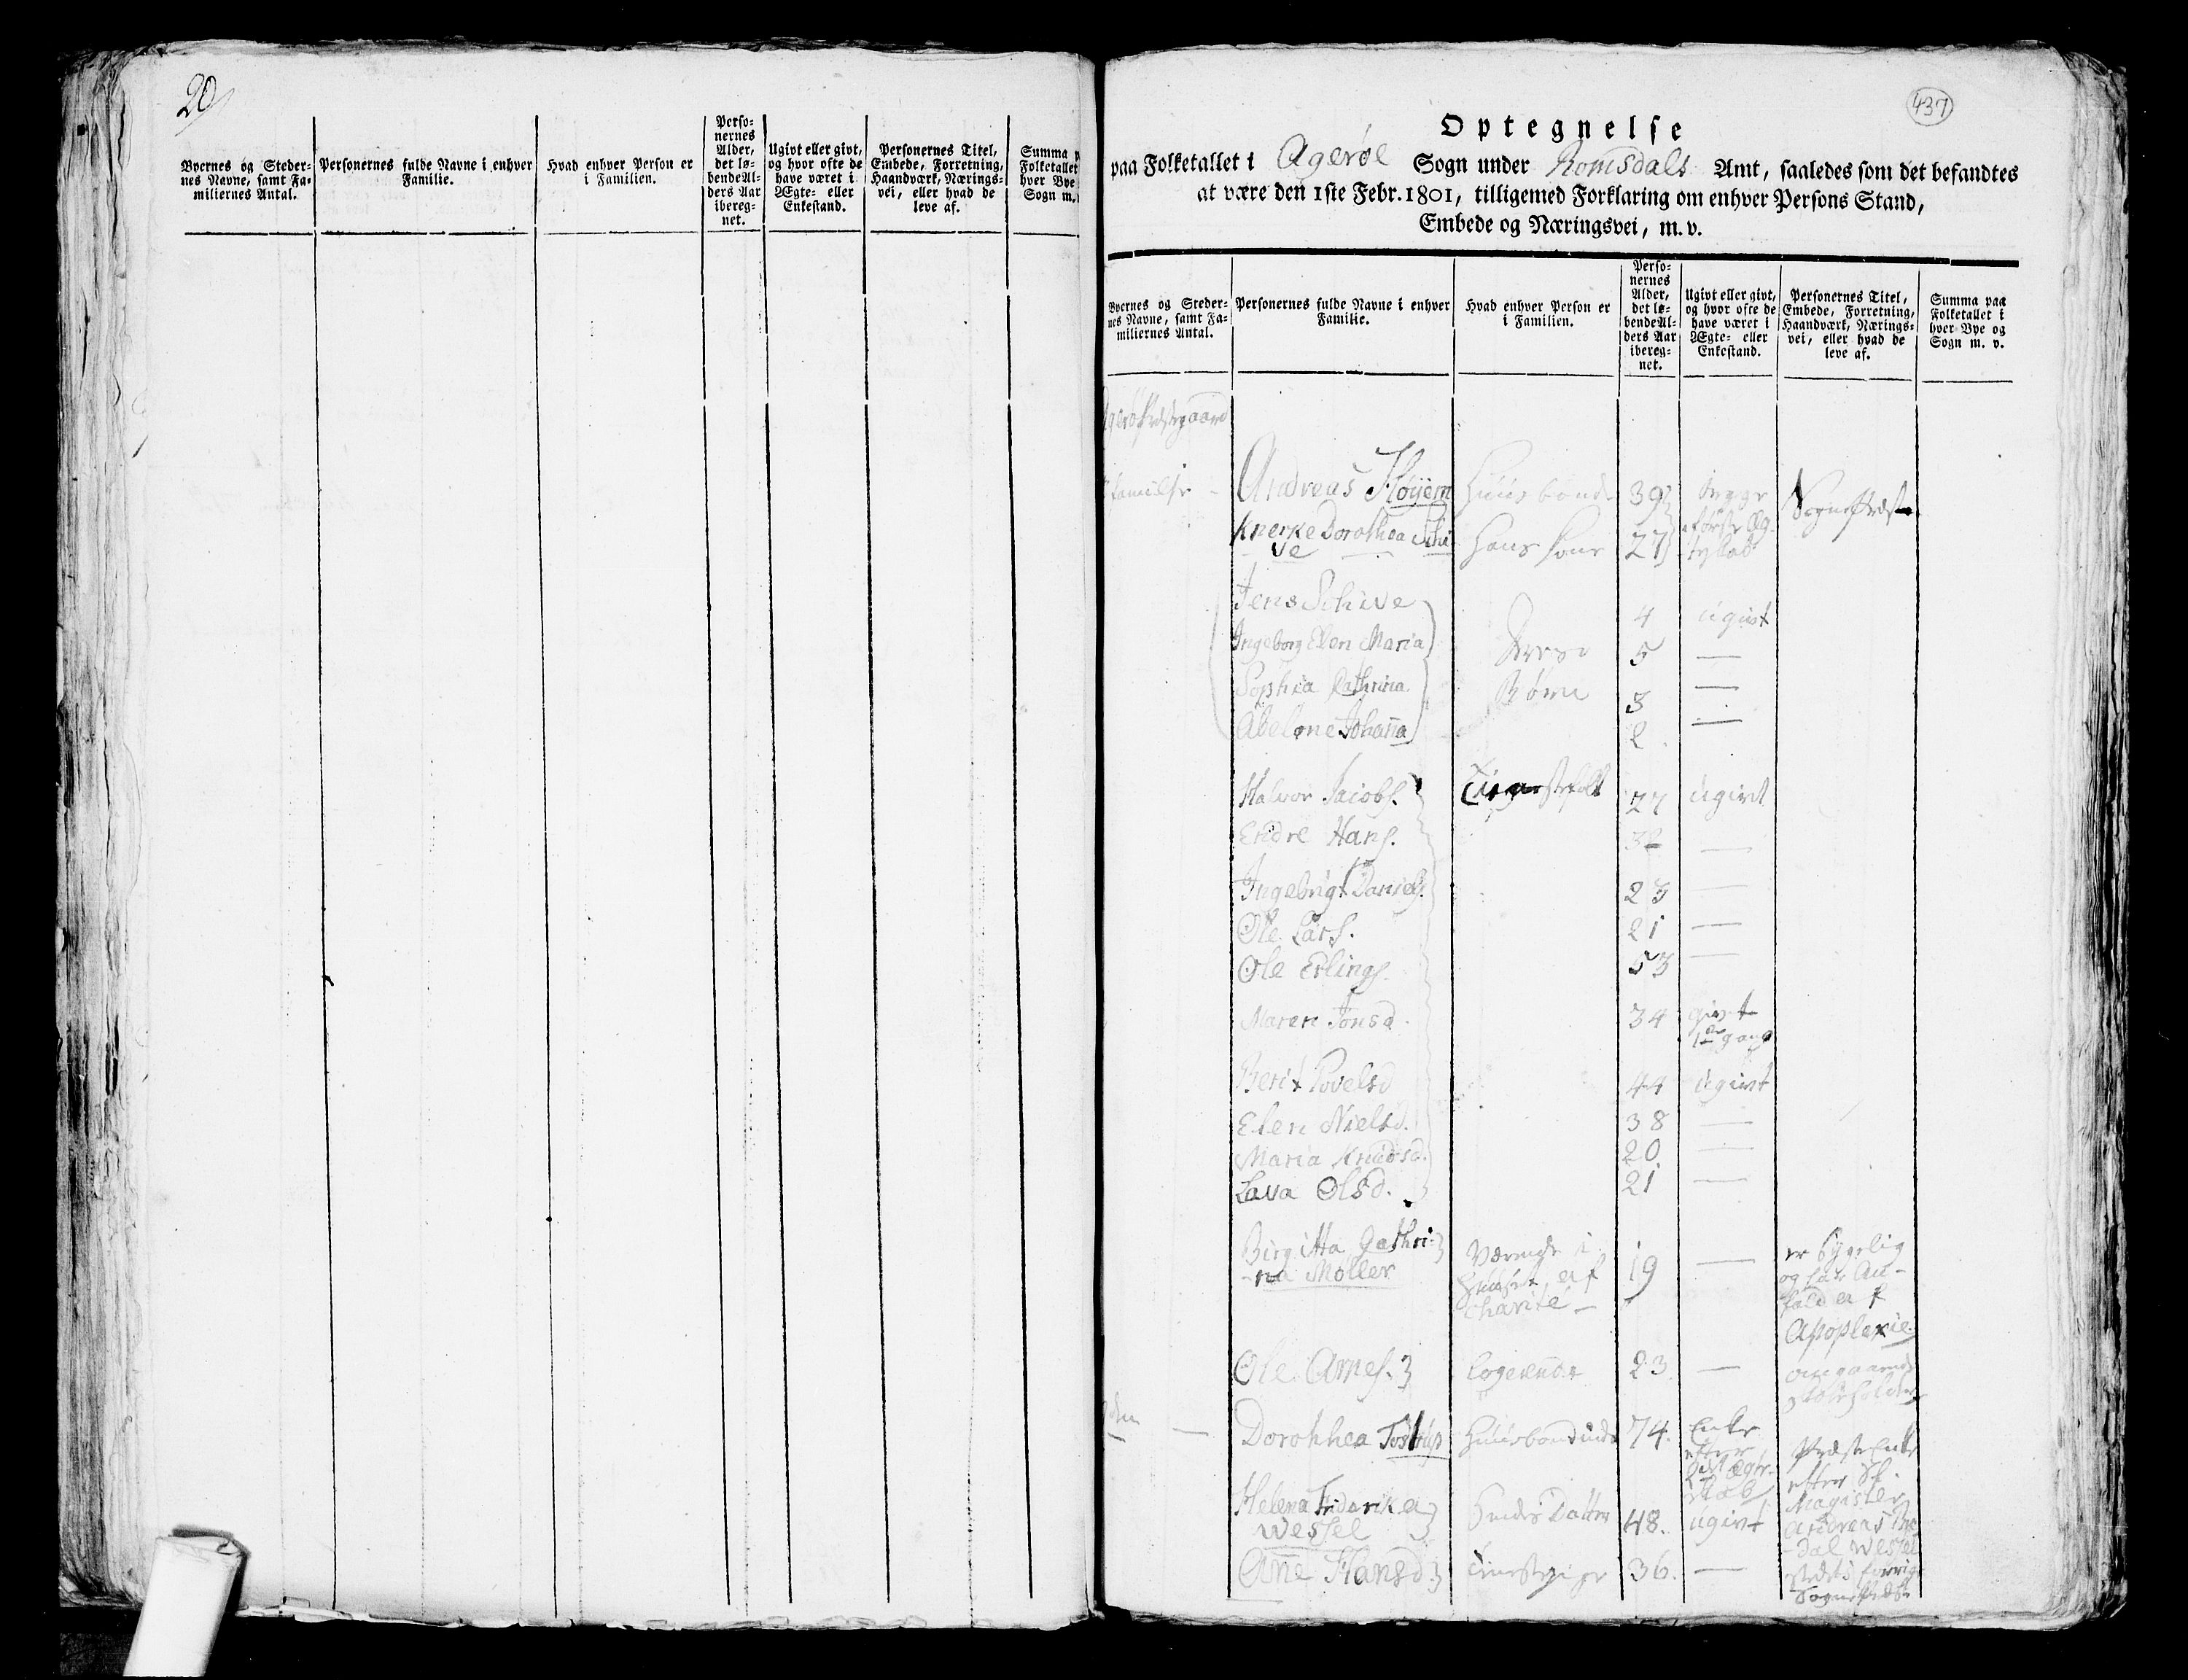 20
Byernes og Steder-
nes Navne, samt Fa-
miliernes Antal.
Personernes fulde Navne i enhver
Familie.
Hvad enhver Person er
i Familien.
Perso-
nernes
Alder,
det lø-
bende Al-
ders Aar
ibereg-
net.
Ugivt eller givt,
og hvor ofte de
have været i
Ægte- eller
Enkestand.
Personernes Titel,
Embede, Forretning,
Haandværk, Nærings-
vei, eller hvad de
leve af.
Summa p
Folketallet
hver Bye
Sogn m.
437
Optegnelse
paa Folketallet i Agerøe Sogn under Romsdals Amt, saaledes som det befandtes
at være den 1ste Febr. 1801, tilligemed Forklaring om enhver Persons Stand,
Embede og Næringsvei, m. v.
Byernes og Steder-
nes Navne, samt Fa-
miliernes Antal.
Personernes fulde Navne i enhver
Familie.
Hvad enhver Person er
i Familien.
Perso-
nernes
Alder,
det lø-
bende Al-
ders Aar
ibereg-
net.
Ugivt eller givt,
og hvor ofte de
have været i
Ægte- eller
Enkestand.
Personernes Titel,
Embede, Forretning,
Haandværk, Nærings-
vei, eller hvad de
leve af.
Summa paa
Folketallet i
hver Bye og
Sogn m. v.
Agerø Præstegaard
familie - Andreas Fløyem Huusbonde 39 begge Sognepræst
Knerke Dorothea Schi- Hans Kone 27 første Æg-
ve teskab
Jens Schive 4 ugivt
Ingeborg Elen Maria Deres 5 —
Sophia Cathrina Børn 3 —
Abelone Johanna 2 —
Halvor Jacobs. Tienestefolk 27 ugivt
Endre Hans. 32 —
Ingebrigt Daniels. 23 —
Ole Lars. 21 —
Ole Erlings. 53 —
Maren Jonsd. 34 givt
1ste gang
Berit Povelsd 44 ugivt
Elen Nielsd. 38 —
Maria Knudsd. 20 —
Lava Olsd. 21 —
Birgitta Cathri- Værende i 19 — er sygelig
-na Møller Huuset af og har An-
charité - fald af
Apoplexie
Ole Arnes. Logerende 23. —
Dorothea Tostrup Huusbondinde 74. Enke Præste Enke
efter efter Sl.
Ægte-
skab Magister
Helena Friderika Hendes Datter 48. ugivt Andreas
Wessel -dal Wessel
Ane Hansd. Tienestepige 36. — stedets forrige
Sognepræst